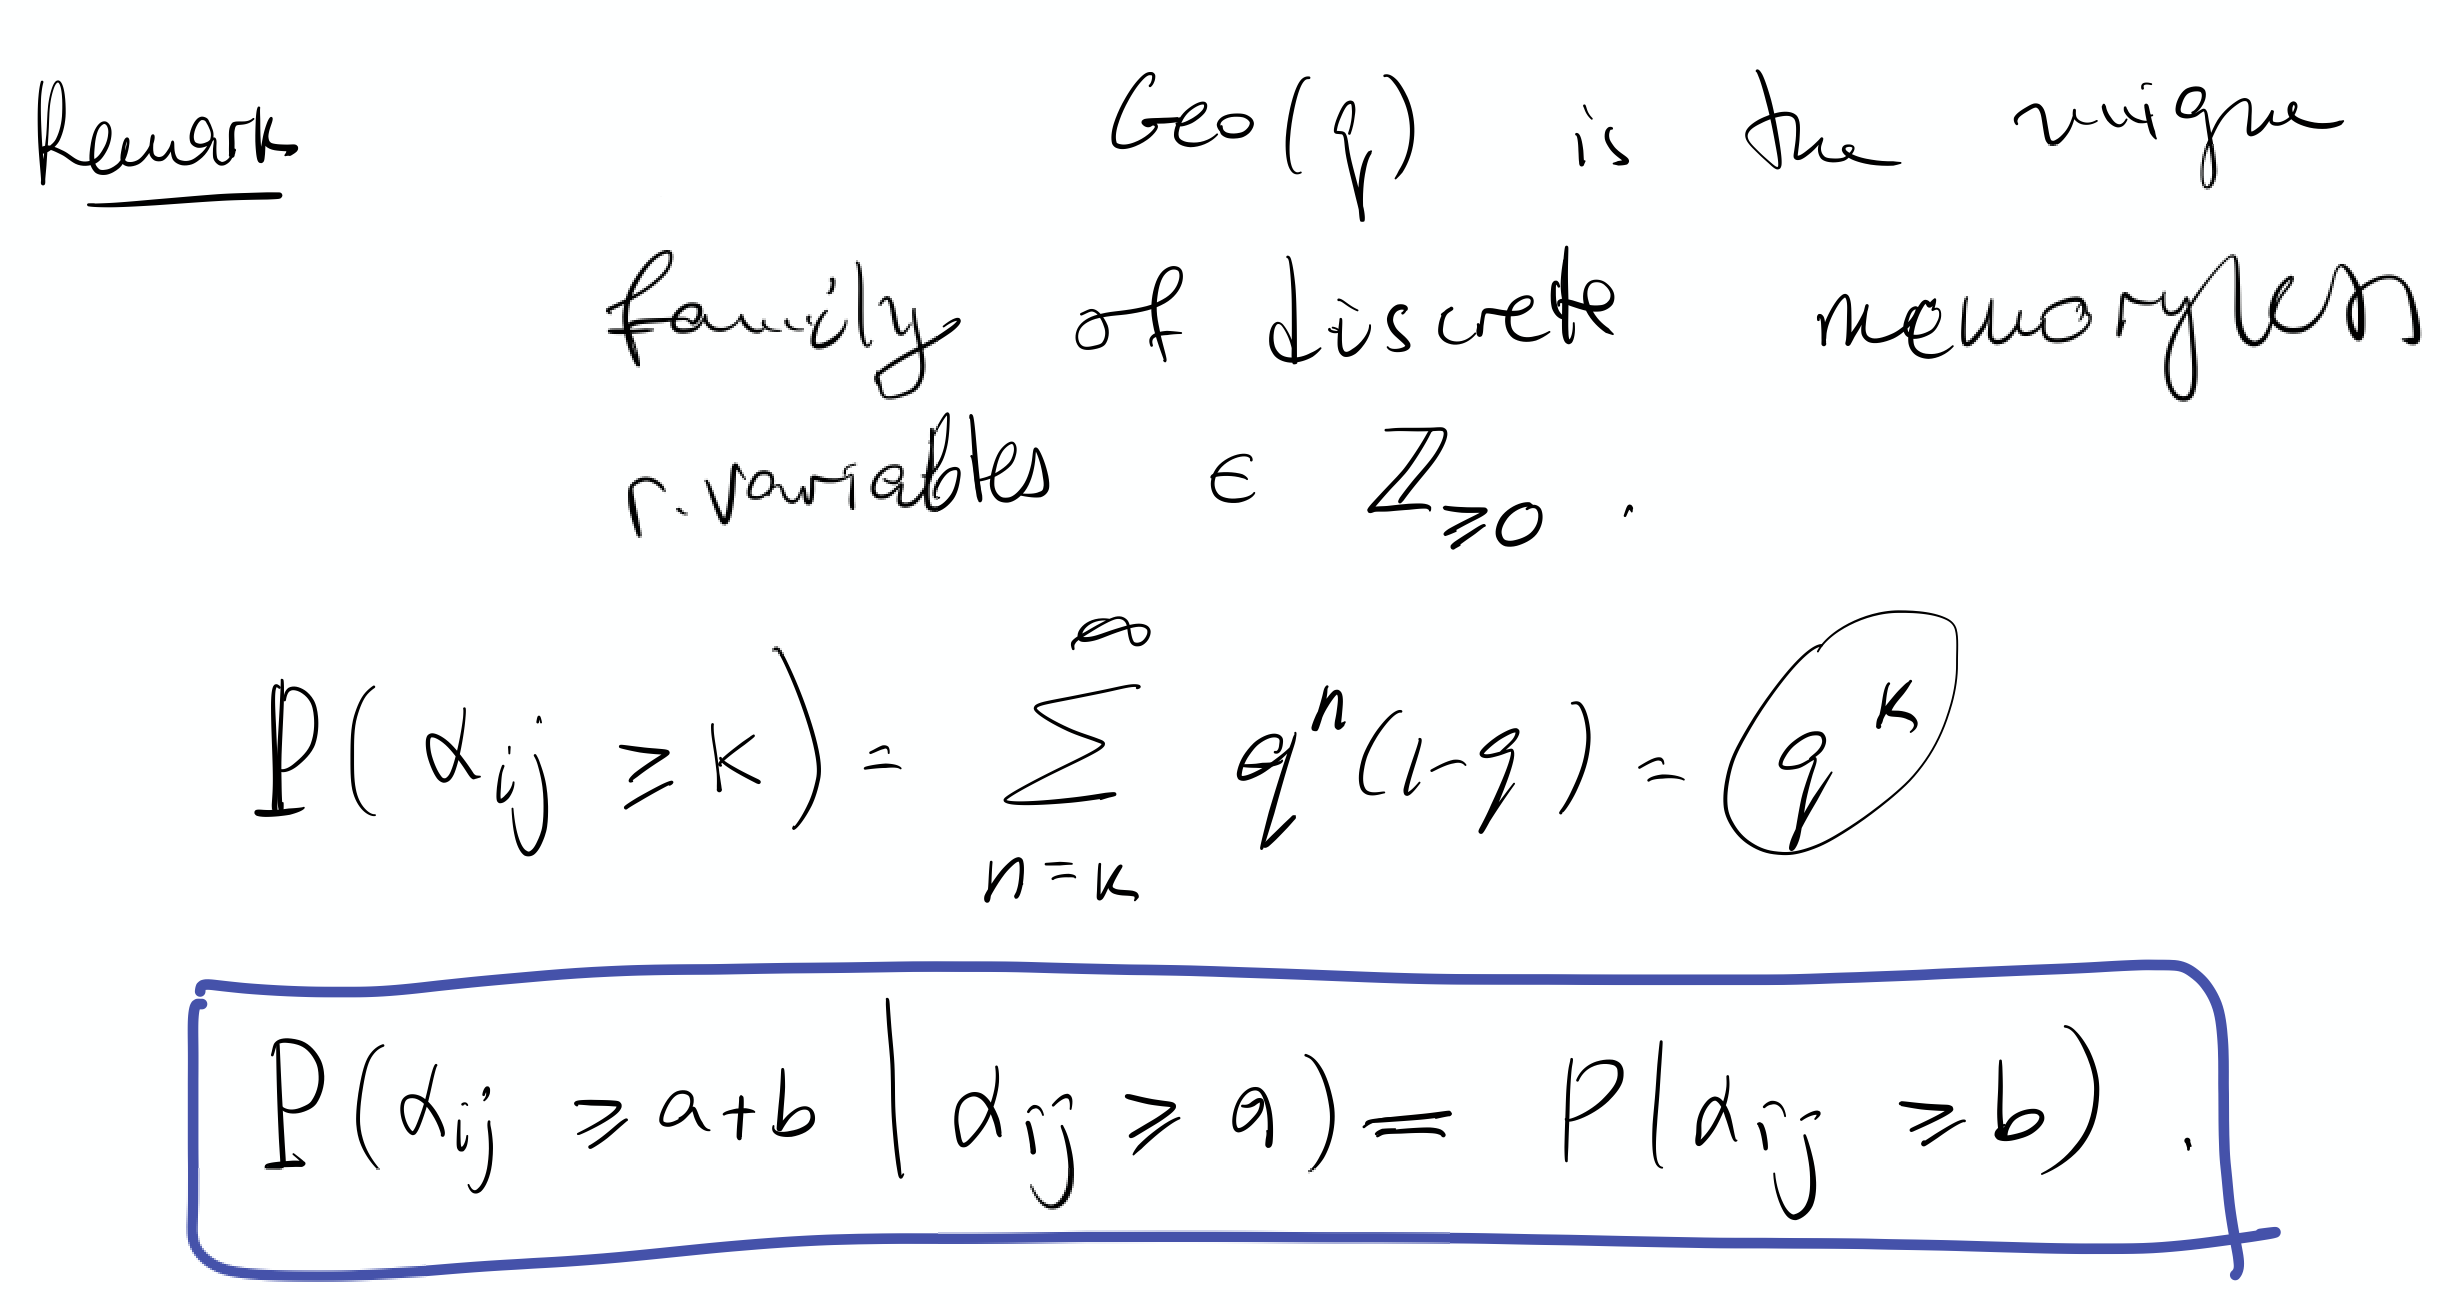 Remark Geo(q) is the unique
family of discrete memoryless
r. variables ∈ ℤ_{≥0} .
P( α_{ij} ≥ k ) = ∑_{n=k}^{∞} q^n (1-q) = q^k
P( α_{ij} ≥ a+b | α_{ij} ≥ a ) = P( α_{ij} ≥ b ) .